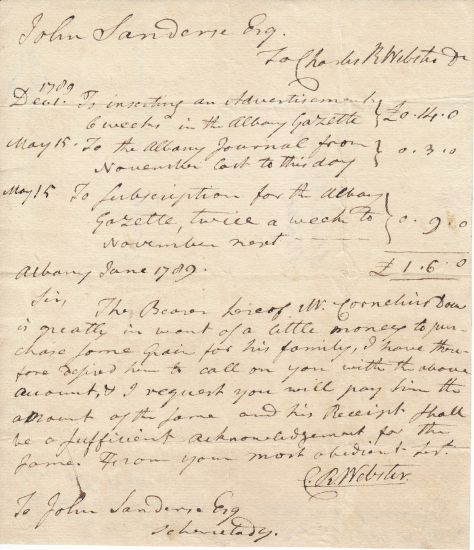 John Sanderse Esq.
To Charles R Webster Dr
1789
To inserting an Advertisement
6 weeks in the Albany Gazette } £0.14.0
May 15. To the Albany Journal from
November last to this day } 0.3.0
May 15 To Subscription for the Albany
Gazette, twice a week to } 0.9.0
November next
£1.6.0
Albany June 1789.
Sir,
The Bearer hereof Mr. Cornelius
is greatly in want of a little money to pur
chase some Grain for his family, I have there
fore desired him to call on you with the above
account, & I request you will pay him the
amount of the same and his Receipt shall
be a sufficient acknowledgement for the
same. From your most obedient Servt.
C. R. Webster.
To John Sanderse Esq
Schenectady.